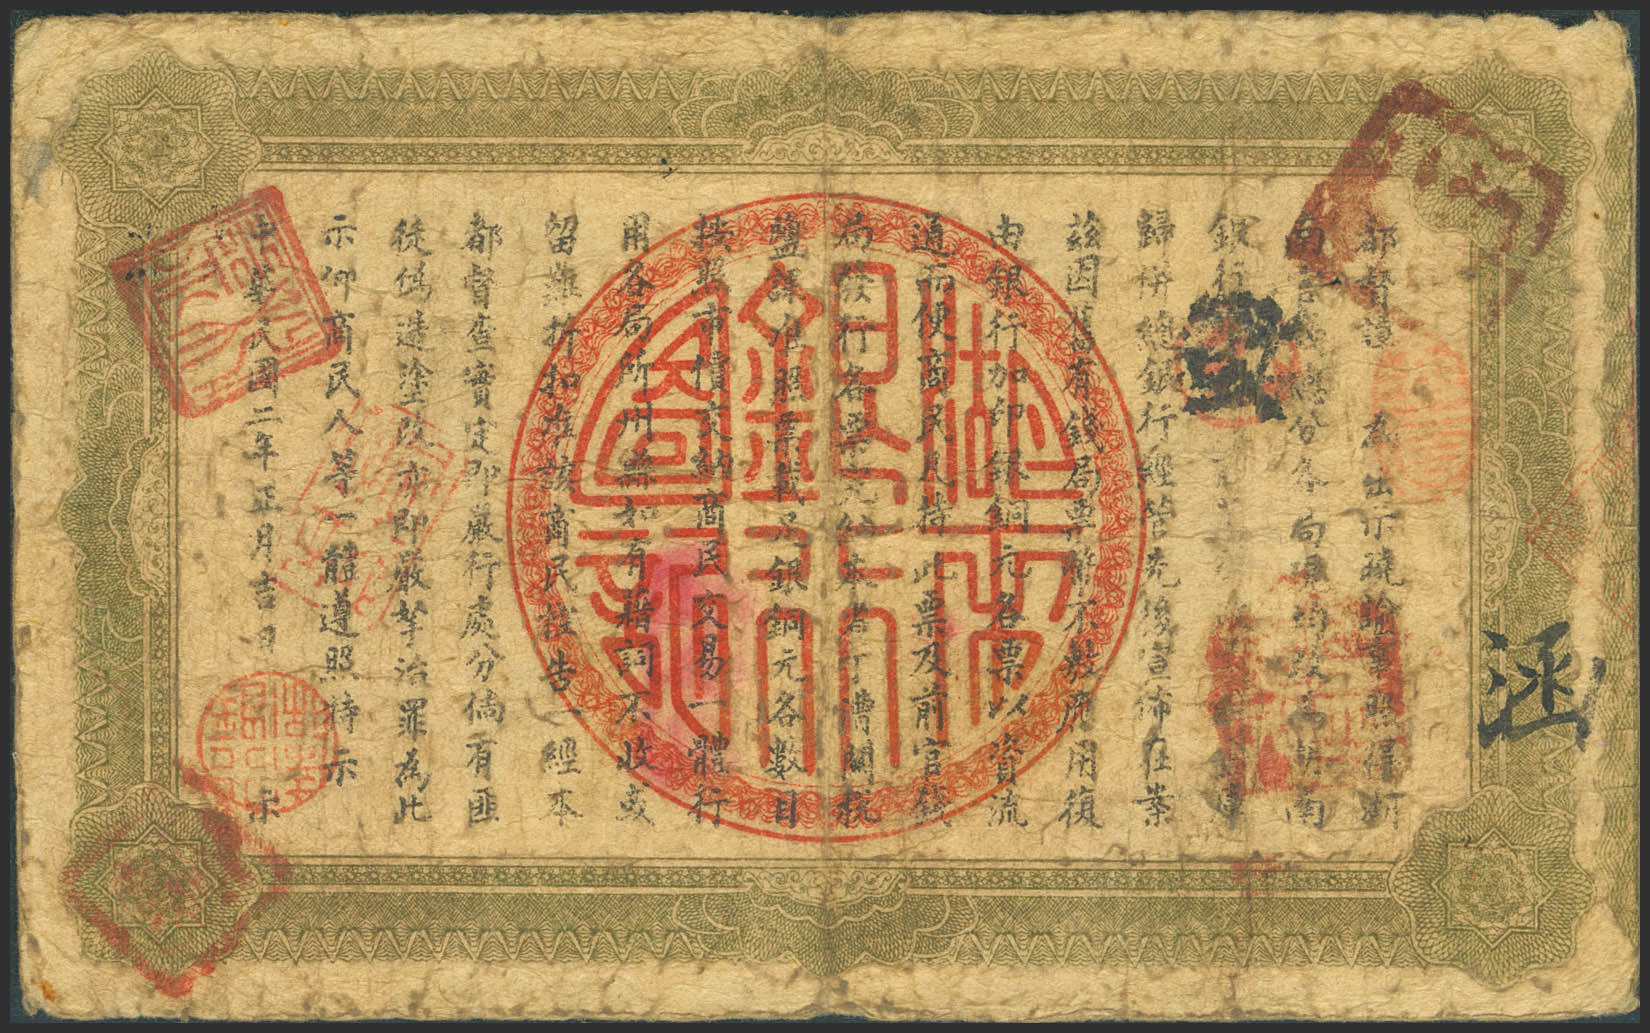 都督譚 為出示曉諭事照得湖
南官錢總分各局現均改為湖南
銀行
歸併總銀行經管先後宣佈在案
茲因舊有錢局票幣不敷應用復
由銀行加印銀銅元各票以資流
通而便商民凡持此票及前官錢
局發行各票完若丁漕關稅
鹽課准照票載足銀銅元各數目
按照市價交納商民交易一體行
用各局所州縣如有藉詞不收或
留難折扣准該商民控告一經本
都督查實定即嚴行處分倘有匪
徒偽造塗改亦即嚴拏治罪為此
示仰商民人等一體遵照特示
中華民國二年正月吉日 示
湖南銀行
涵